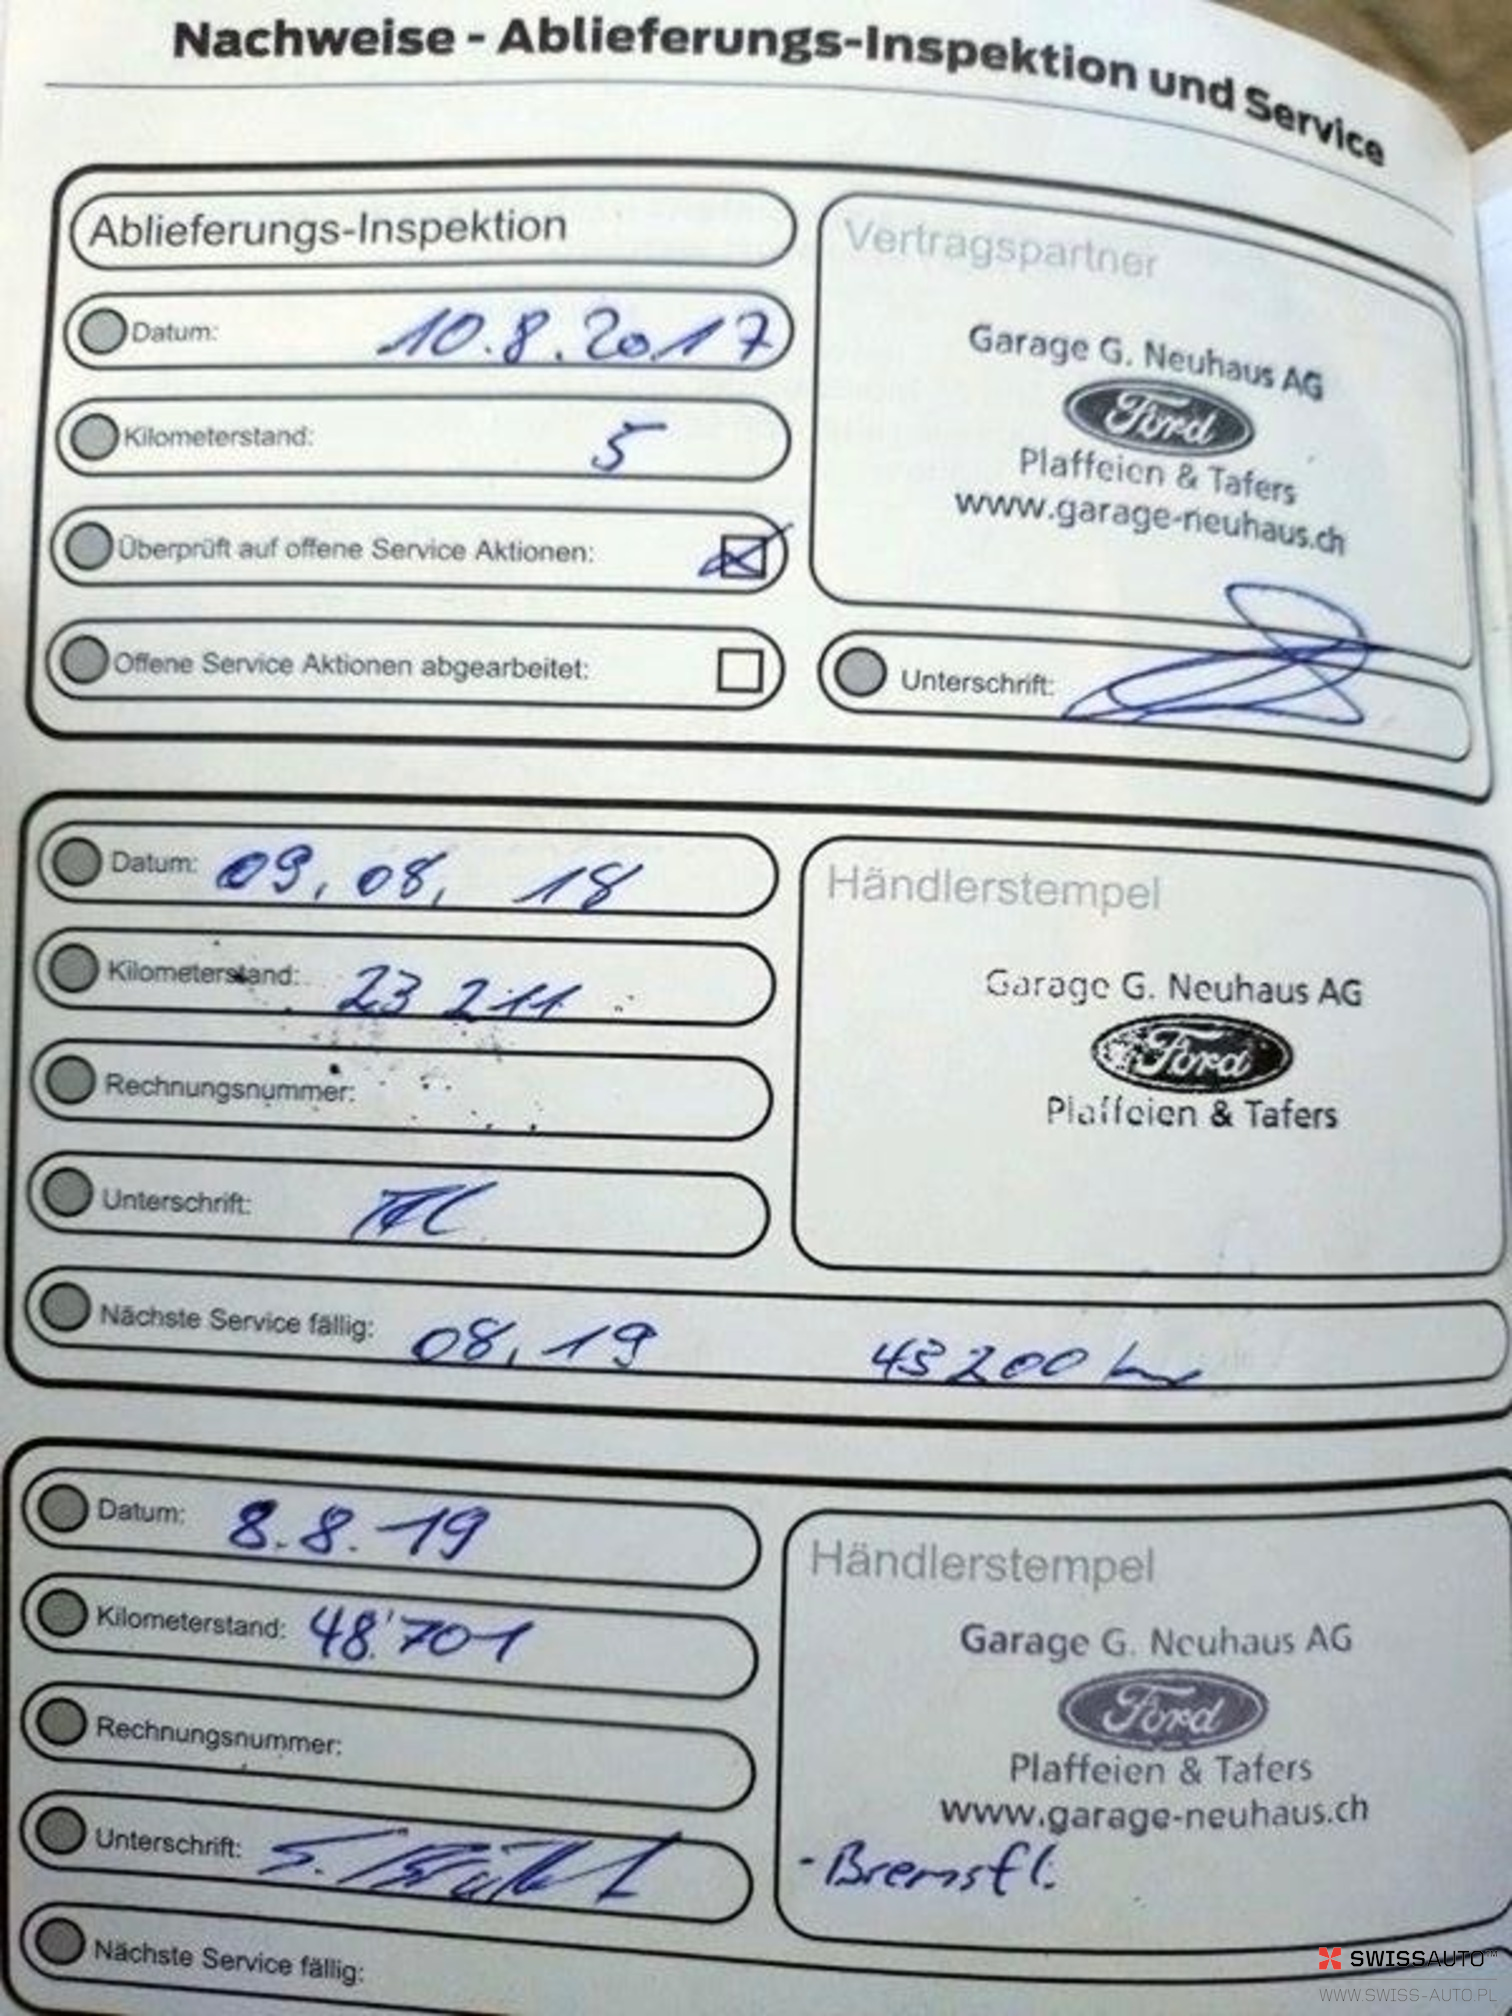 Nachweise - Ablieferungs-Inspektion und Service
Ablieferungs-Inspektion
Datum: 10.8.2017
Kilometerstand: 5
Überprüft auf offene Service Aktionen:
Offene Service Aktionen abgearbeitet:
Vertragspartner
Garage G. Neuhaus AG
Ford
Plaffeien & Tafers
www.garage-neuhaus.ch
Unterschrift:
Datum: 09, 08, 18
Kilometerstand: 23 211
Rechnungsnummer:
Unterschrift:
Händlerstempel
Garage G. Neuhaus AG
Ford
Plaffeien & Tafers
Nächste Service fällig: 08, 19 43200 km
Datum: 8.8.19
Kilometerstand: 48'701
Rechnungsnummer:
Unterschrift:
Händlerstempel
Garage G. Neuhaus AG
Ford
Plaffeien & Tafers
www.garage-neuhaus.ch
- Bremsfl.
Nächste Service fällig:
SWISSAUTO™
WWW.SWISS-AUTO.PL